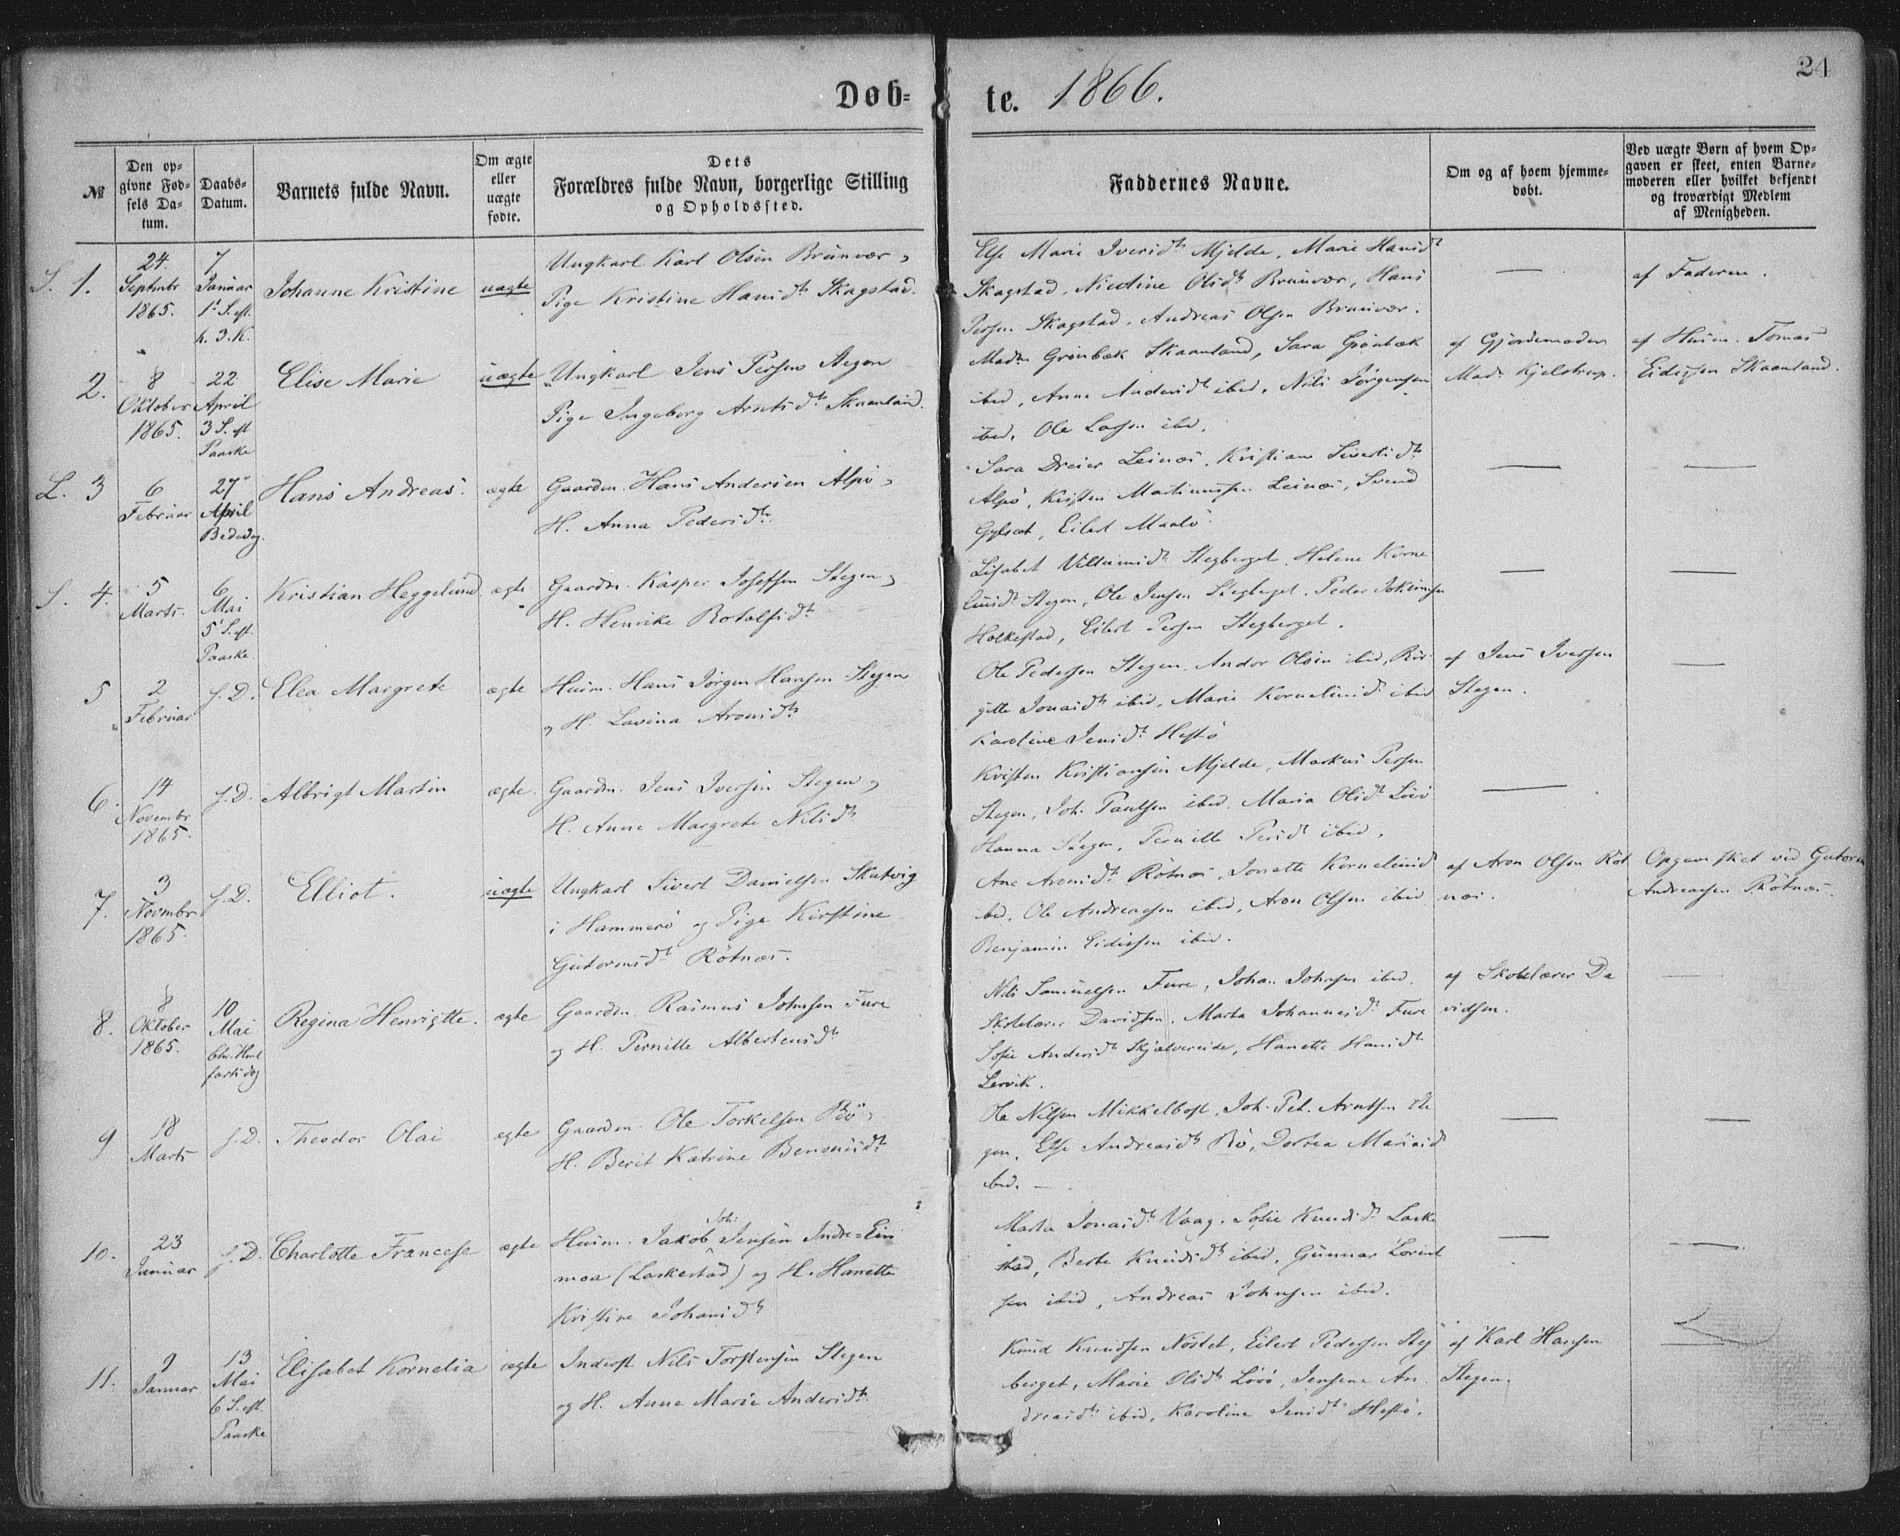 24
Døb-te. 1866.
№
Den op-
givne Fød-
sels Da-
tum.
Daabs-
Datum.
Barnets fulde Navn.
Om ægte
eller
uægte
fødte.
Dets
Forældres fulde Navn, borgerlige Stilling
og Opholdssted.
Faddernes Navne.
Om og af hvem hjemme-
døbt.
Ved uægte Børn af hvem Op-
gaven er skeet, enten Barne-
moderen eller hvilket bekjendt
og troværdigt Medlem
af Menigheden.
S. 1.
24.
Septmbr
1865.
7
Januar
1. S. eft.
h. 3. K.
Johanne Kristine
uægte
Ungkarl Karl Olsen Brunvær,
Pige Kristine Hansdt Skagstad.
Else Marie Iversdt Mjelde, Marie Hansdt
Skagstad, Nicoline Olsdt Brunvær, Hans
Persen Skagstad, Andreas Olsen Brunvær.
af Faderen.
2.
8
Oktober
1865.
22
April
3 S. eft
Paaske
Elise Marie
uægte
Ungkarl Jens Persen Stegen
Pige Ingeborg Arntsdt Skaanland.
Madm Grønbæk Skaanland, Sara Grønbæk
ibid, Anne Andersdt ibid, Nils Jørgensen
ibid, Ole Larsen ibid.
af Gjordemoder
Mad. Kjelstrup.
af Husm. Tomas
Eidissen Skaanland.
L. 3
6
Februar
27
April
Bededag.
Hans Andreas.
ægte
Gaardm. Hans Andersen Alpø,
H. Anna Pedersdt.
Sara Dreier Leines, Kristiane Sivertsdt
Alpø, Kristen Martinussen Leines, Svend
Gylset, Eilert Maalø.
S. 4.
5
Marts.
6
Mai
5 S. eft.
Paaske.
Kristian Heggelund
ægte
Gaardm. Kasper Josefsen Stegen,
H. Henrike Rotalfsdt
Lisabet Villumsdt Stegberget, Helene Korne
liusdt Stegen, Ole Jensen Stegberget, Peder Jokumsen
Holkestad, Eilert Persen Stegberget.
5
2
Februar
s. D.
Elea Margrete
ægte
Husm. Hans Jørgen Hansen Stegen
og H. Lavina Aronsdt
Ole Pedersen Stegen, Andor Olsen ibid, Bir-
gitte Jonasdt ibid, Marie Korneliusdt ibid
Karoline Jensdt Hestø
af Jens Iversen
Stegen.
6.
14
Novembr
1865.
s. D.
Albrigt Martin
ægte.
Gaardm. Jens Iversen Stegen,
H. Anne Margrete Nilsdt
Kristen Kristiansen Mjelde, Markus Persen
Stegen, Joh. Paulsen ibid, Maria Olsdt Løvø
Hanna Stegen, Pernille Persdt ibid.
7.
3
Novmbr
1865.
s. D.
Elliot.
uægte
Ungkarl Sivert Danielsen Skutvig
i Hammerø og Pige Kirstine
Gutormsdt Røtnes.
Ane Aronsdt Røtnes, Jonette Korneliusdt
ibid, Ole Andreassen ibid, Aron Olsen ibid
Benjamin Eidissen ibid.
af Aron Olsen Røt
nes.
Opgav sket ved Gutorm
Andreassen Røtnes.
8.
8
Oktober
1865.
10
Mai
Chr. Him̄l
fartsdag
Regina Henrigtte.
ægte
Gaardm. Rasmus Johnsen Fure
og H. Pernille Albertusdt
Nils Samuelsen Fure, Johan Johnsen ibid,
Skolelærer Davidsen, Marta Johannesdt Fure
Sofie Andersdt Skjelvereide, Hanette Hansdt
Lervik.
af Skolelærer Da
vidsen.
9
18
Marts
s. D.
Theodor Olai
ægte
Gaardm. Ole Torkelsen Bø,
H. Berit Katrine Bensnisdt
Ole Nilsen Mikkelbost, Joh. Pet. Arntsen Ste
gen, Else Andreasdt Bø, Dortea Mariasd
ibid. —
10.
23
Januar
s. D.
Charlotte Francese
ægte
Husm. Jakob Joh: Jensen Indre-Ein
moa (Laskestad) og H. Hanette
Kristine Johansdt
Marta Jonasdt Vaag, Sofie Knudsdt Laske
stad, Berte Knudsdt ibid, Gunnar Lorent
sen ibid, Andreas Johnsen ibid.
11.
9
Januar
13
Mai
6 S. eft.
Paaske
Elisabet Kornelia
ægte
Inderst Nils Torstensen Stegen
og H. Anne Marie Andersdt.
Knud Knudsen Nøstet, Eilert Pedersen Steg
berget, Marie Olsdt Løvø, Jensene An-
dreasdt ibid, Karoline Jensdt Hestø.
af Karl Hansen
Stegen.